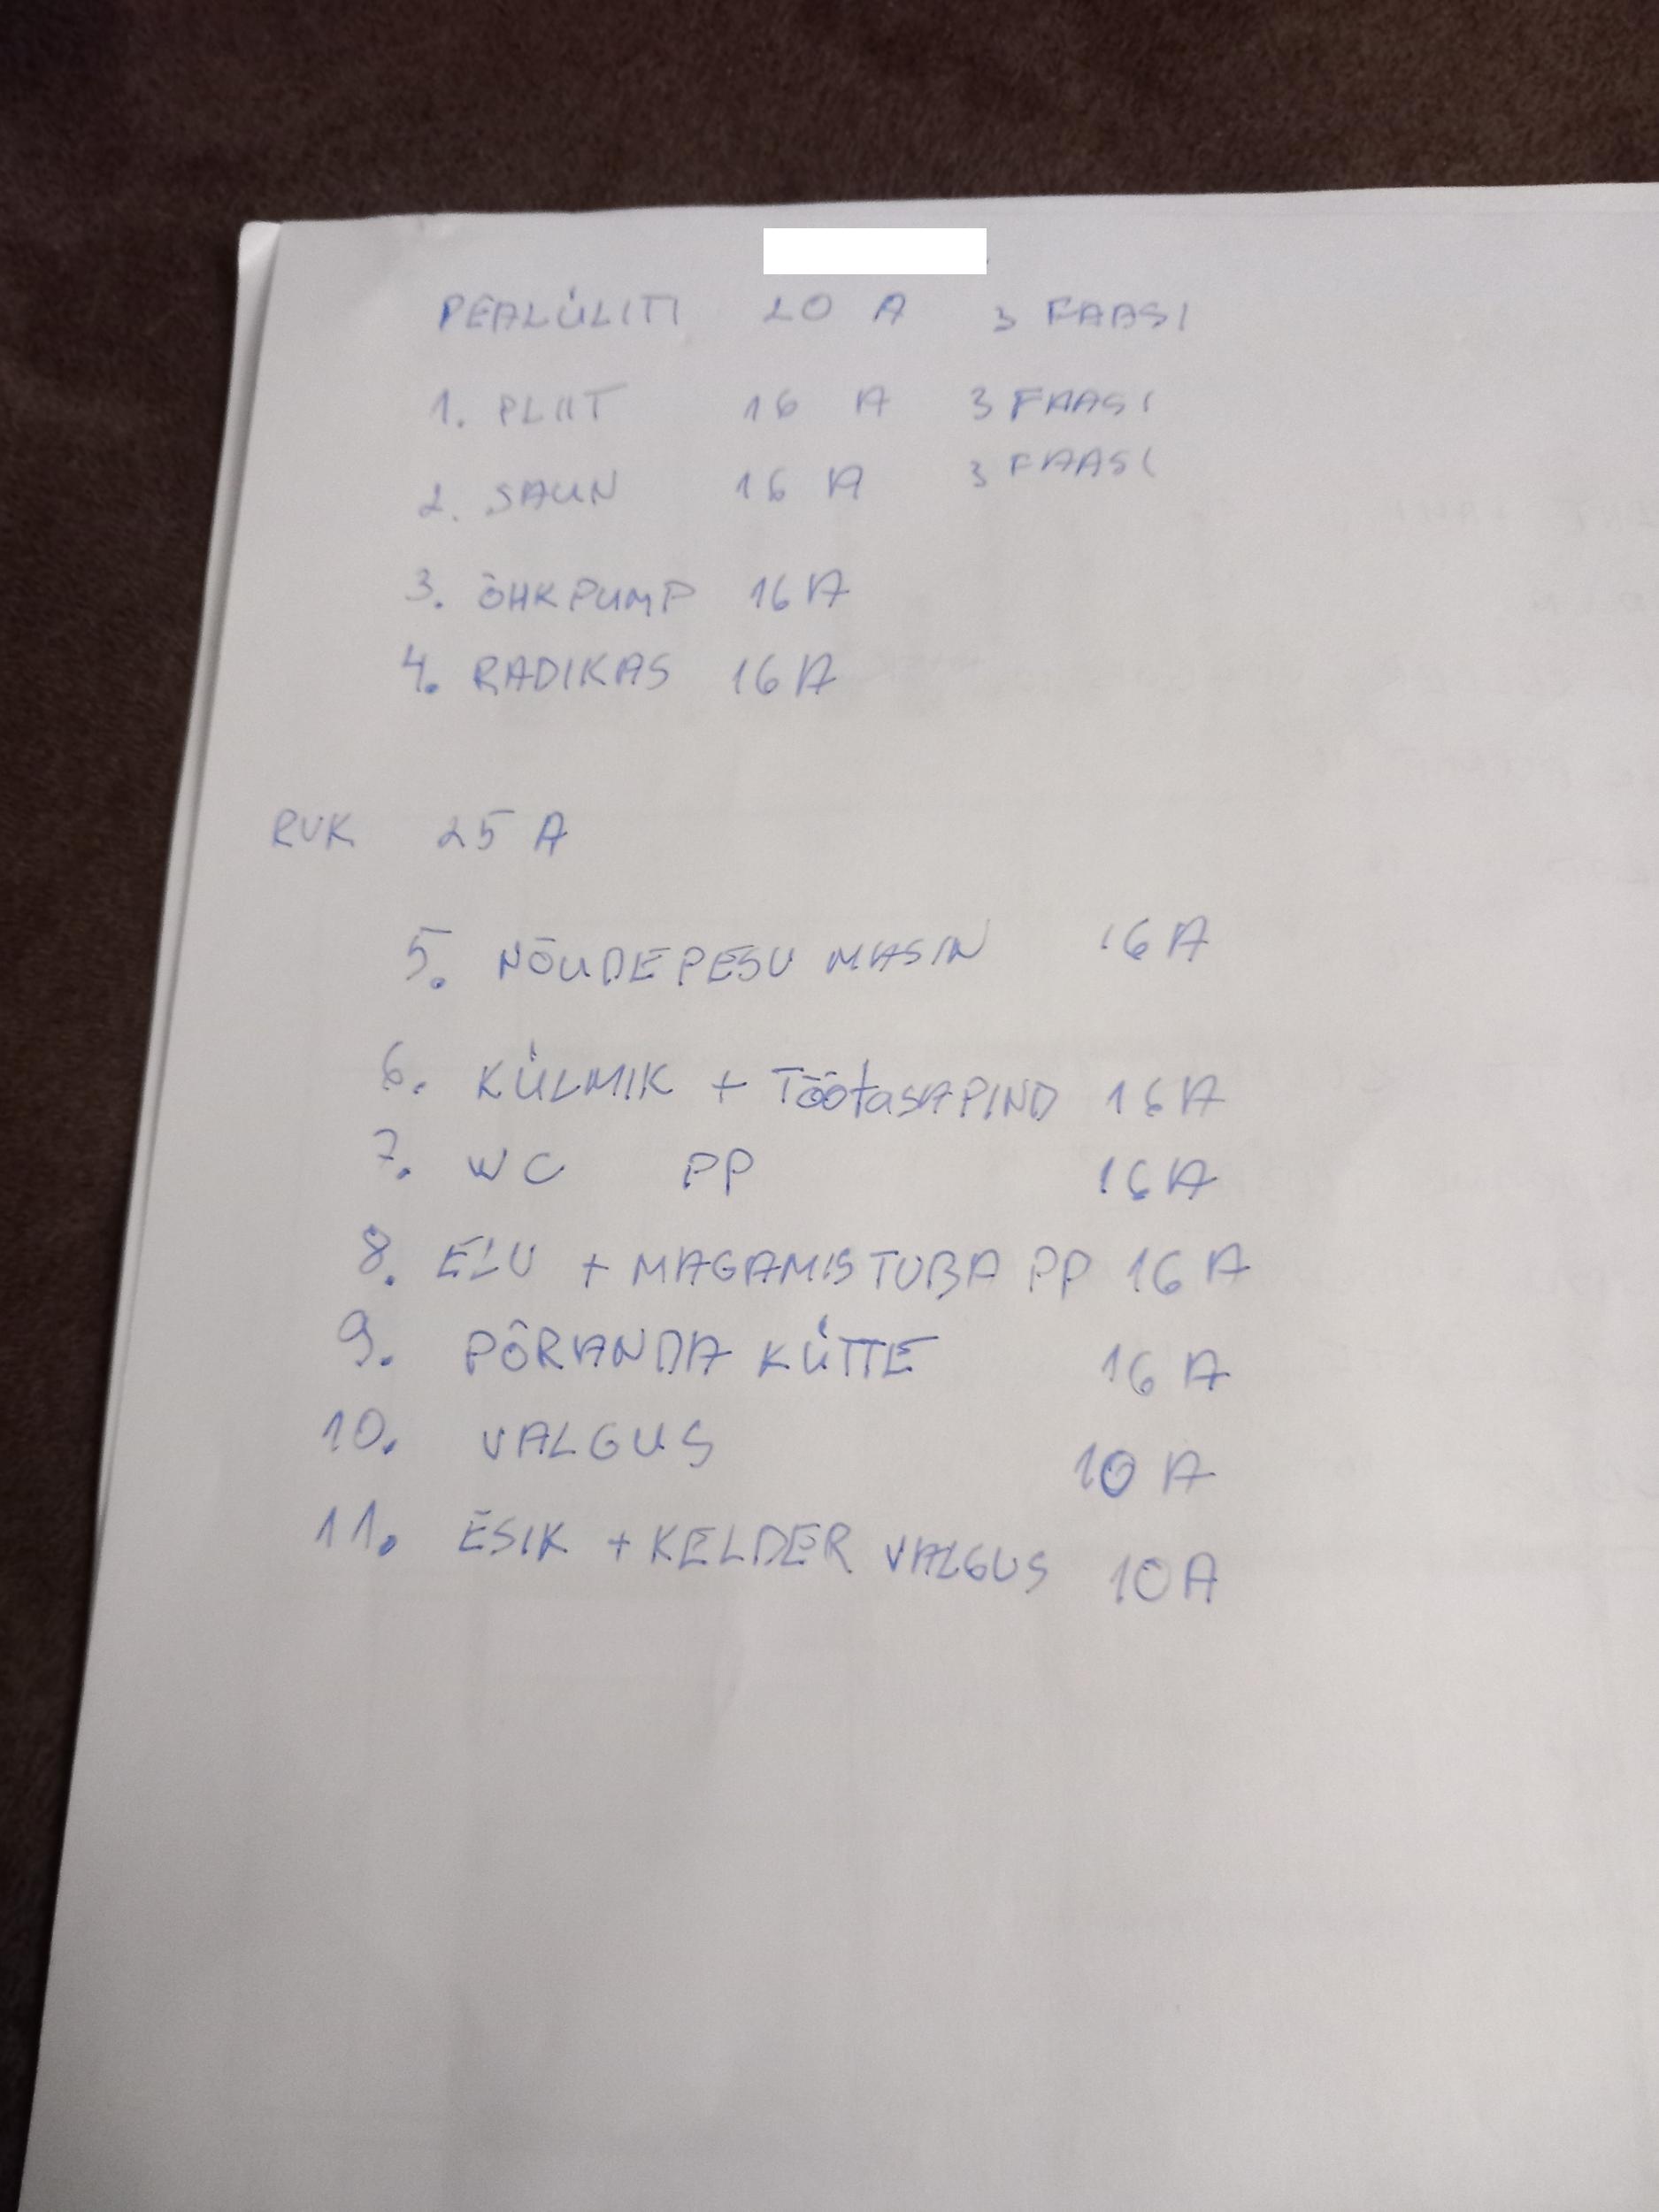 PEALÜLITI 20 A 3 FAASI
1. PLIIT 16 A 3 FAASI
2. SAUN 16 A 3 FAASI
3. ÕHKPUMP 16A
4. RADIKAS 16A
RVK 25 A
5. NÕUDEPESU MASIN 16A
6. KÜLMIK + TÖÖtasAPIND 16A
7. WC PP 16A
8. ELU + MAGAMISTUBA PP 16A
9. PÕRANDA KÜTTE 16A
10. VALGUS 10 A
11. ESIK + KELDER VALGUS 10A